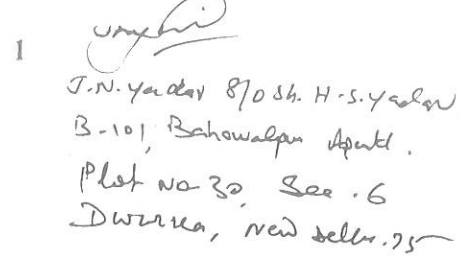 1
J.N. Yadav S/o Sh. H.S. Yadav
B-101, Bahawalpur Apartt.
Plot No 30, Sec. 6
Dwarka, New Delhi. 75